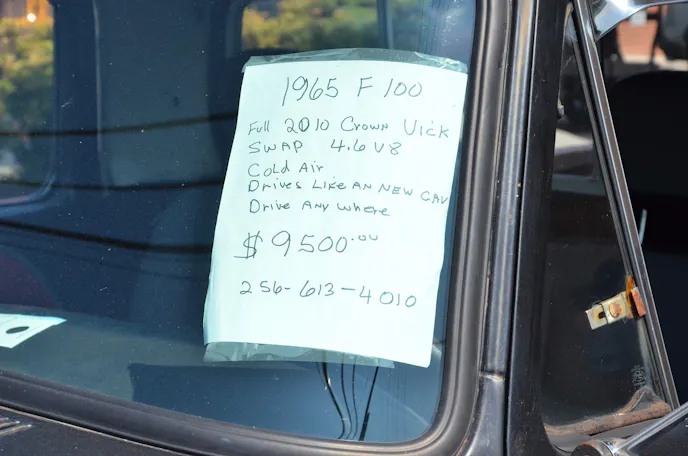 1965 F 100
Full 2010 Crown Vick
SWAP 4.6 V8
Cold Air
Drives Like AN NEW CAV
Drive Any where
$ 9500.00
256-613-4010